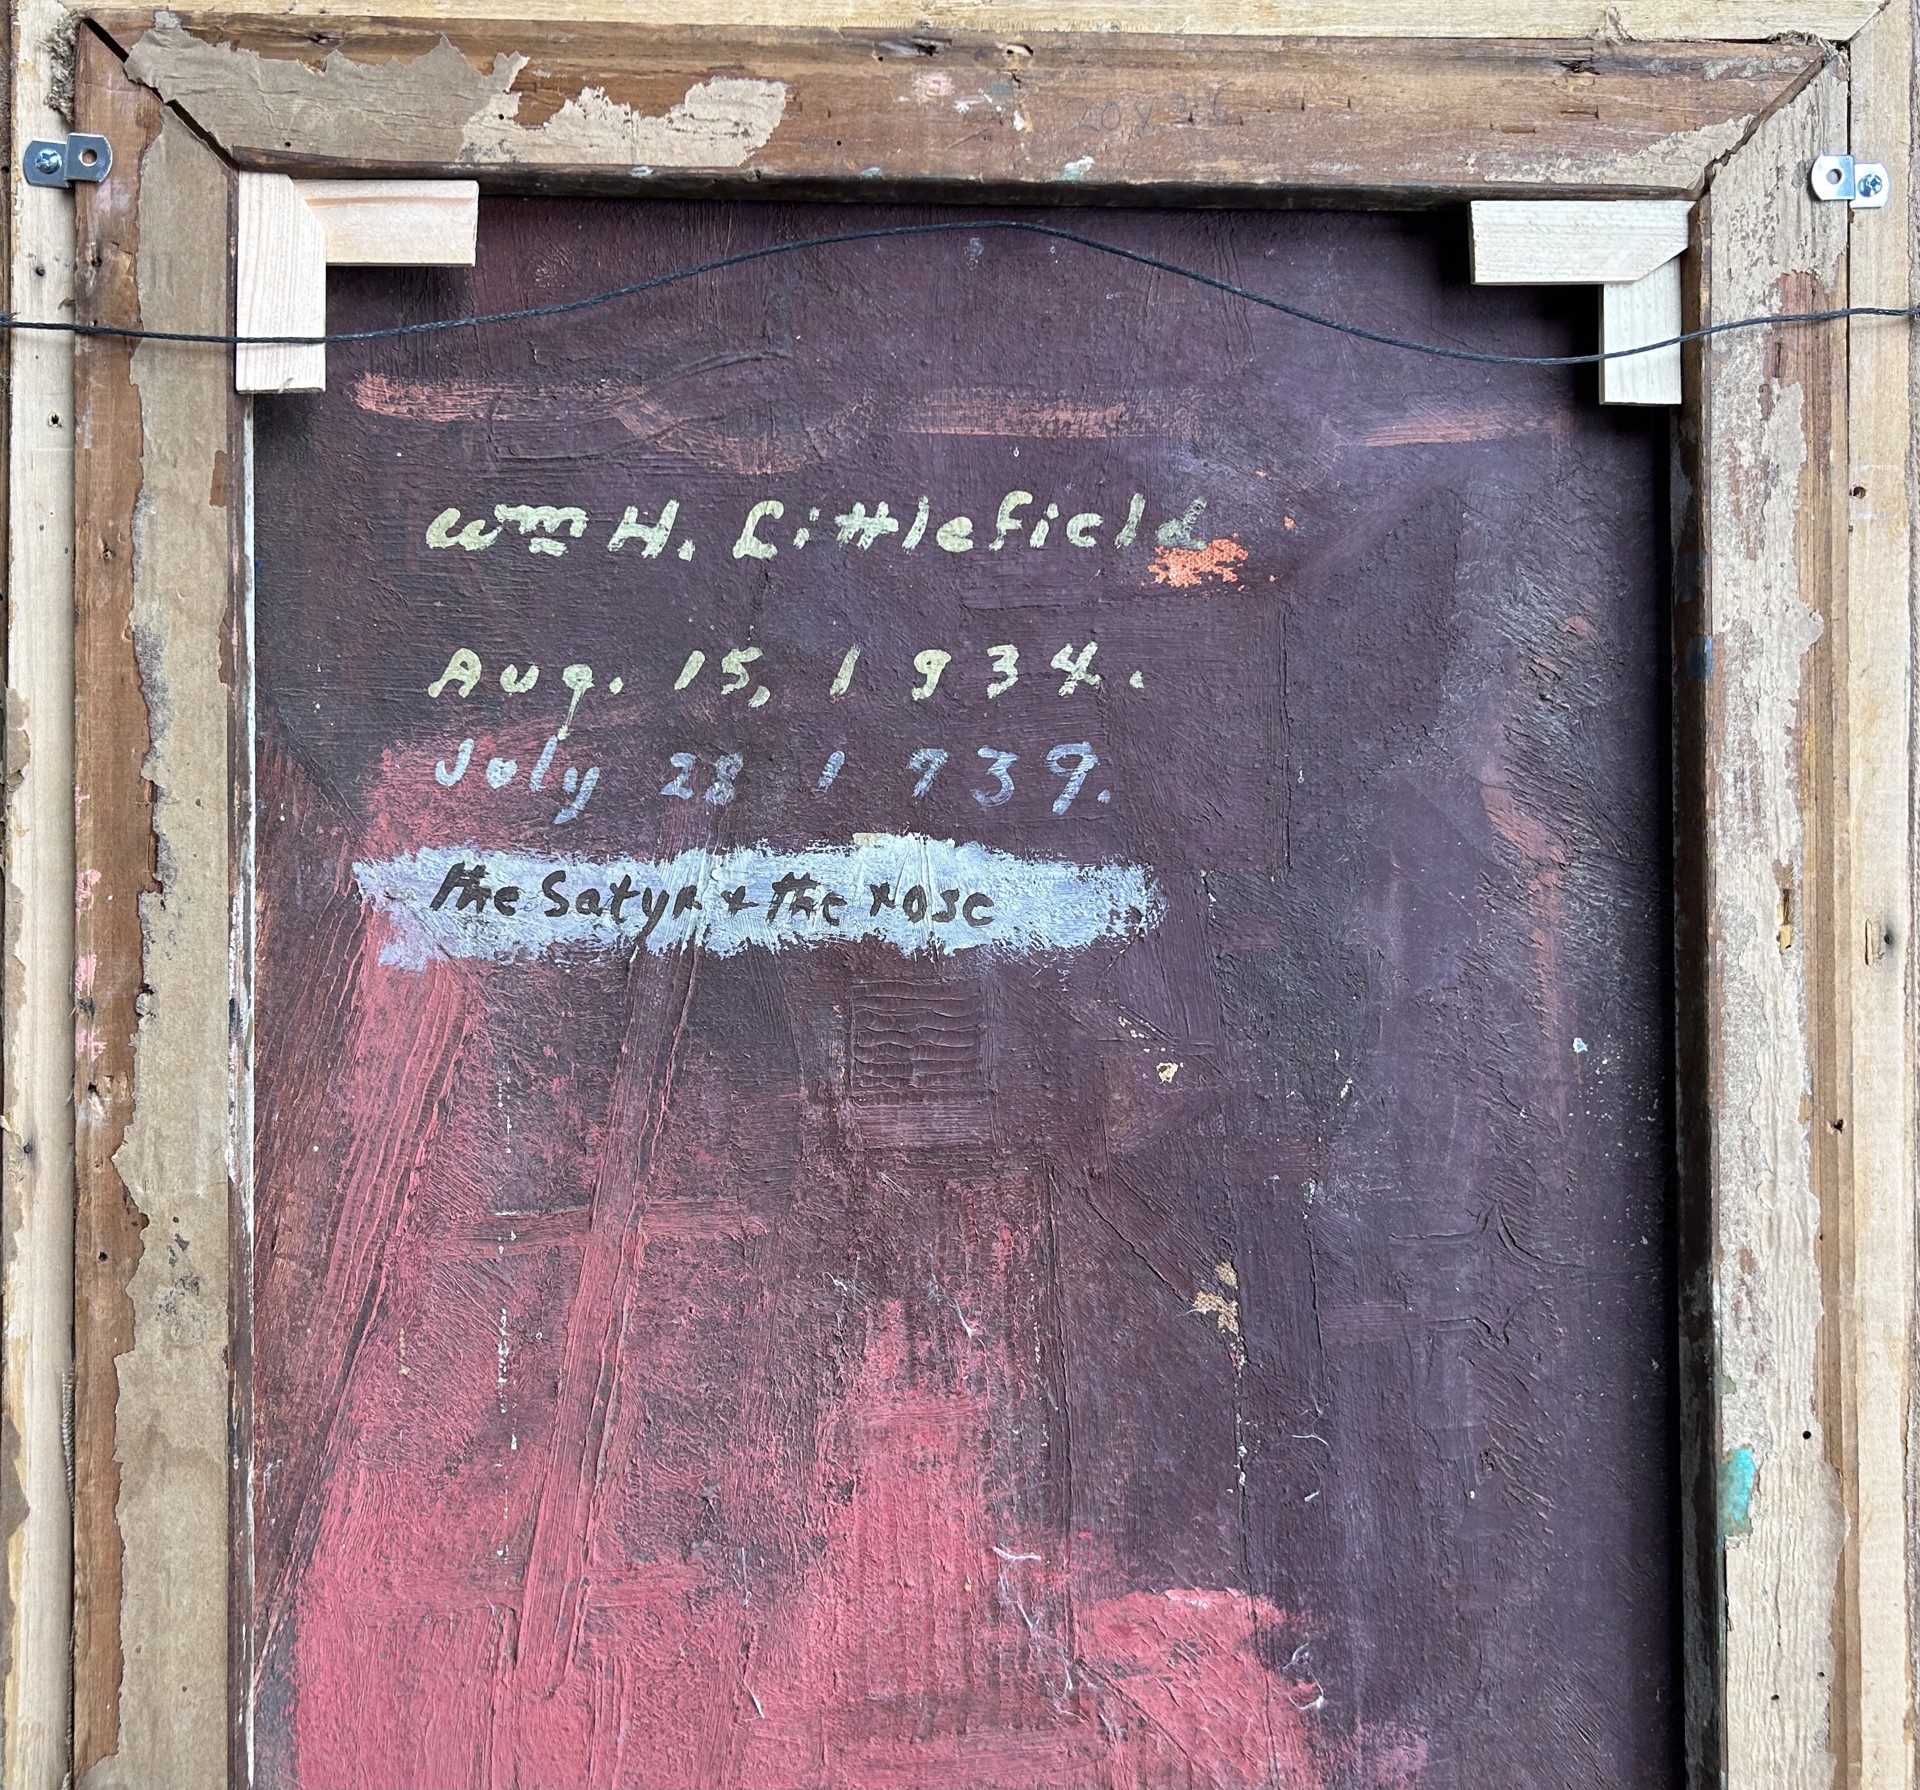 20 x 26
Wm H. Littlefield
Aug. 15, 1934.
July 28 1939.
the Satyr + the rose